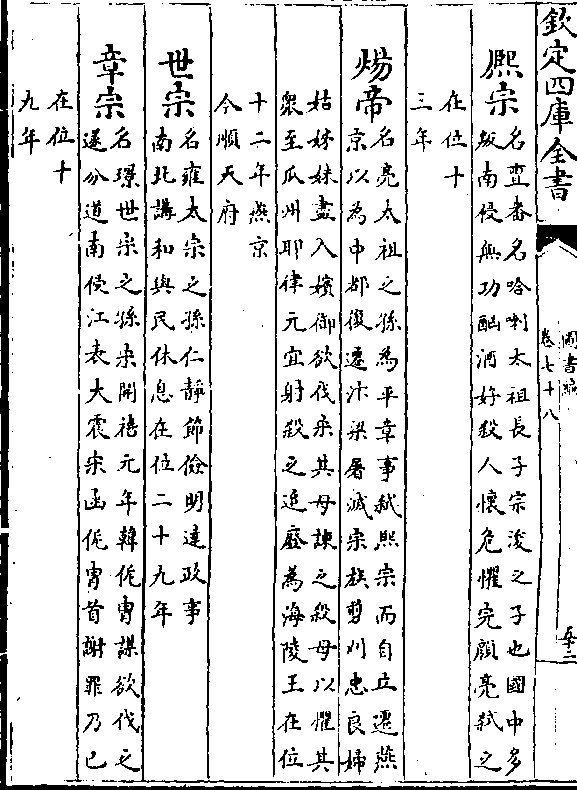 欽定四庫全書
圖書編
卷七十八
熙宗
名亶番名哈喇太祖長子宗浚之子也國中多
叛南侵無功酗酒好殺人懷危懼完顔亮弑之
在位十
三年
煬帝
名亮太祖之孫為平章事弑熙宗而自立遷燕
京以為中都復遷汴梁屠滅宗族剪刈忠良婦
姑姊妹盡入嬪御欲伐宋其母諫之殺母以懼其
衆至瓜州耶律元宜射殺之追廢為海陵王在位
十二年燕京
今順天府
世宗
名雍太宗之孫仁靜節儉明達政事
南北講和與民休息在位二十九年
章宗
名璟世宗之孫宋開禧元年韓侂冑謀欲伐之
遂分道南侵江表大震宋函侂冑首謝罪乃已
在位十
九年